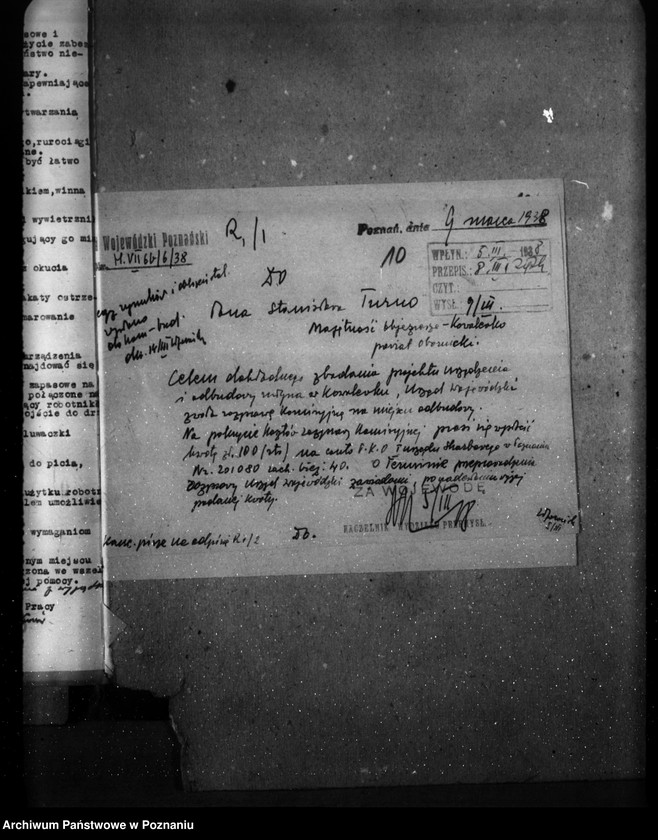 sowe i
życie zabez
stwo nie-
ary.
apewniające
twarzania
o,rurociągi
ne.
być łatwo
kiem,winna
i wywietrzni
gujący go mi
z okucia
akaty ostrze-
marowanie
arządzenia
najdować się
zapasowe na
połączone na
ący robotnik
ojście do dr
luwaczki
do picia,
użytku robotn
lem umożliwie
wymaganiom
nym miejscu
zona we wszel
j pomocy.
Pracy
Wojewódzki Poznański
R,/1
Poznań, dnia 9 marca 1938
H.VII 6b/6/38
10
WPŁYN.: 5.III 1938
PRZEPIS.: 8.III
CZYT.:
WYSŁ. 9/III.
Do
Pana Stanisława Turno
Majętność Objezierze-Kowalewko
powiat obornicki.
Celem dokładnego zbadania projektu urządzenia
i odbudowy młyna w Kowalewku, Urząd Wojewódzki
zwoła rozprawę komisyjną na miejscu odbudowy.
Na pokrycie kosztów rozprawy komisyjnej prosi się wpłacić
kwotę zł. 100 (sto) na konto P.K.O I Urzędu Skarbowego w Poznaniu
Nr. 201080 rach. bież. 40. O terminie przeprowadzenia
rozprawy Urząd Wojewódzki zawiadomi, po nadesłaniu wyżej
podanej kwoty.
ZA WOJEWODĘ
5/III
NACZELNIK WYDZIAŁU PRZEMYSŁ.
5/III
Kanc. pisze na odpisie R,/2
Do.
Archiwum Państwowe w Poznaniu